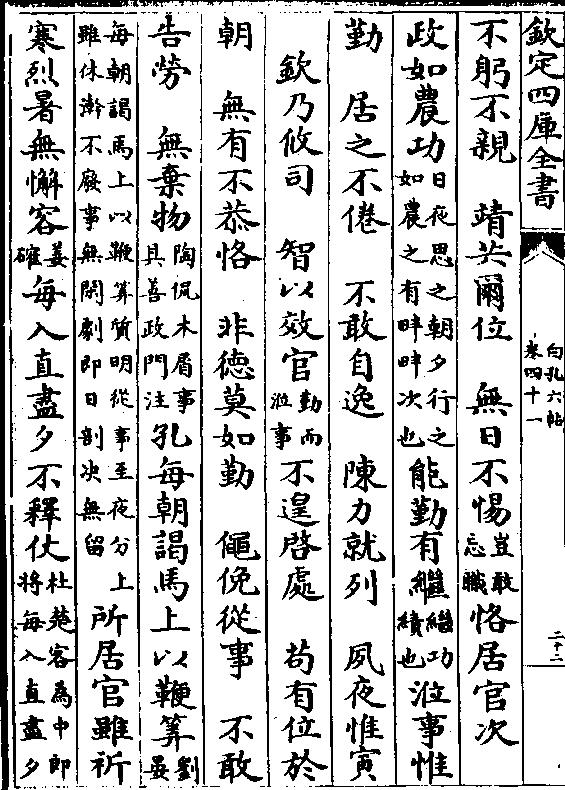 欽定四庫全書 白孔六帖 卷四十一 二十二
不躬不親　靖共爾位　無日不惕豈敢忘職恪居官次
政如農功日夜思之朝夕行之如農之有畔畔次也能勤有繼繼功績也涖事惟
勤　居之不倦　不敢自逸　陳力就列　夙夜惟寅
欽乃攸司　智以效官勤而涖事不遑啓處　苟有位於
朝　無有不恭恪　非德莫如勤　僶俛從事　不敢
告勞　無棄物陶侃木屑事具善政門注孔每朝謁馬上以鞭筭劉晏
每朝謁馬上以鞭算質明從事至夜分上雖休澣不廢事無閑劇即日剖决無留所居官雖祈
寒烈暑無懈容姜確每入直盡夕不釋仗杜楚客為中郎將每入直盡夕